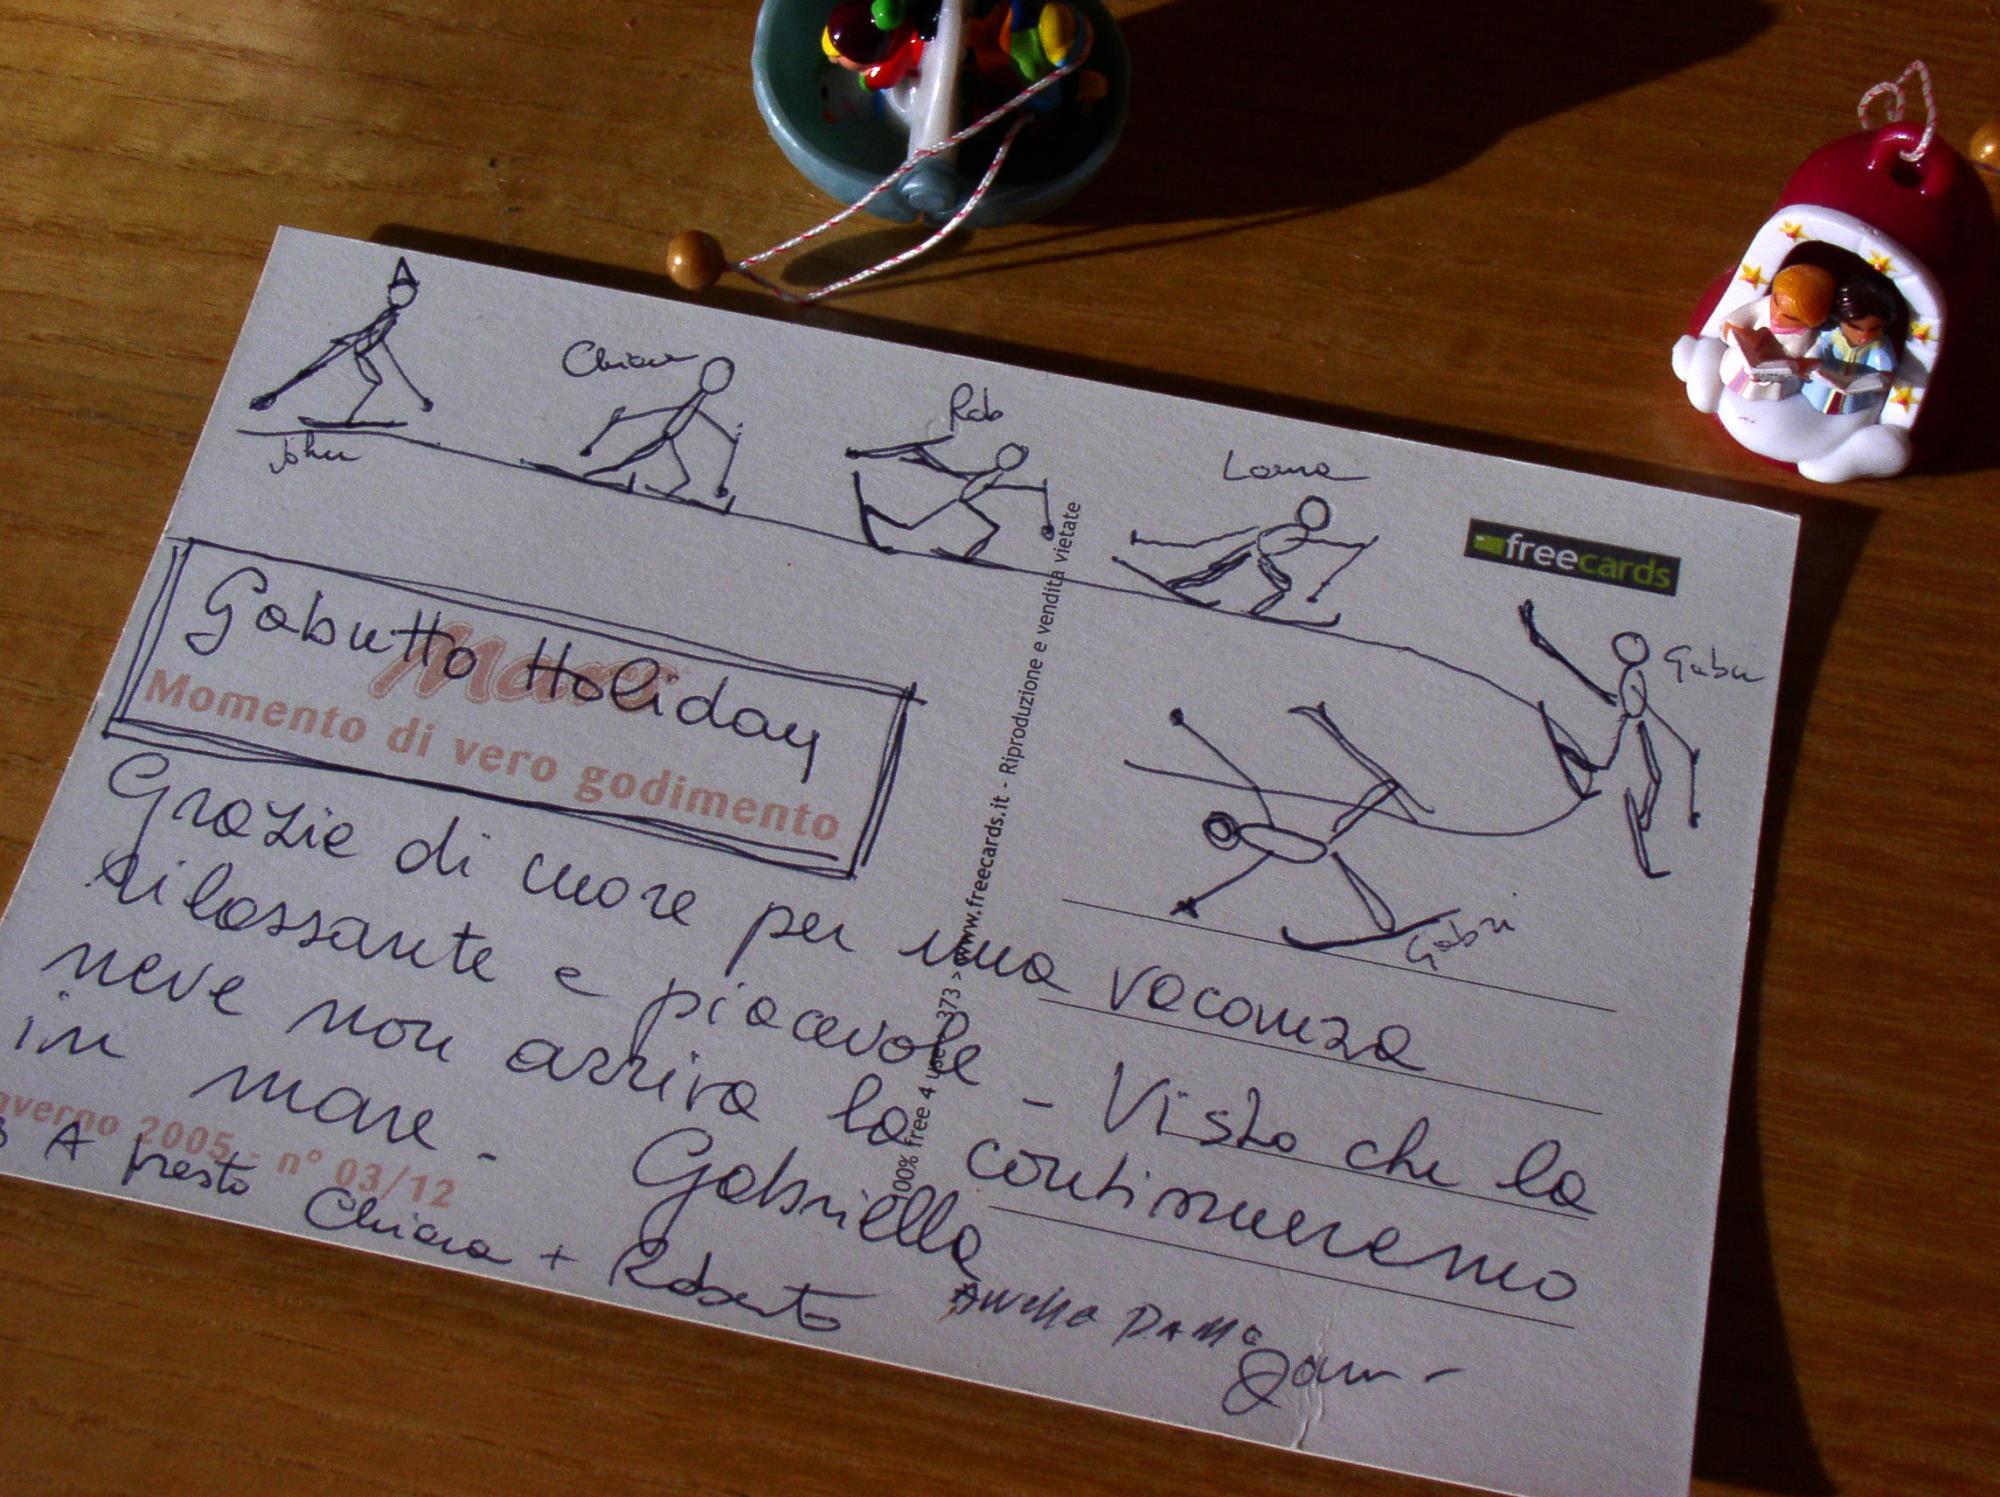 John
Chiara
Rob
freecards
Gabu
Gabutto Holiday
Mars
Momento di vero godimento
Gabri
Grazie di cuore per una vacanza
rilassante e piacevole - Visto che la
neve non arriva la continueremo
in mare -
Gabriella
2005 - n° 03/12
A presto Chiara + Roberto
100% free 4 use 373 > www.freecards.it - Riproduzione e vendita vietate